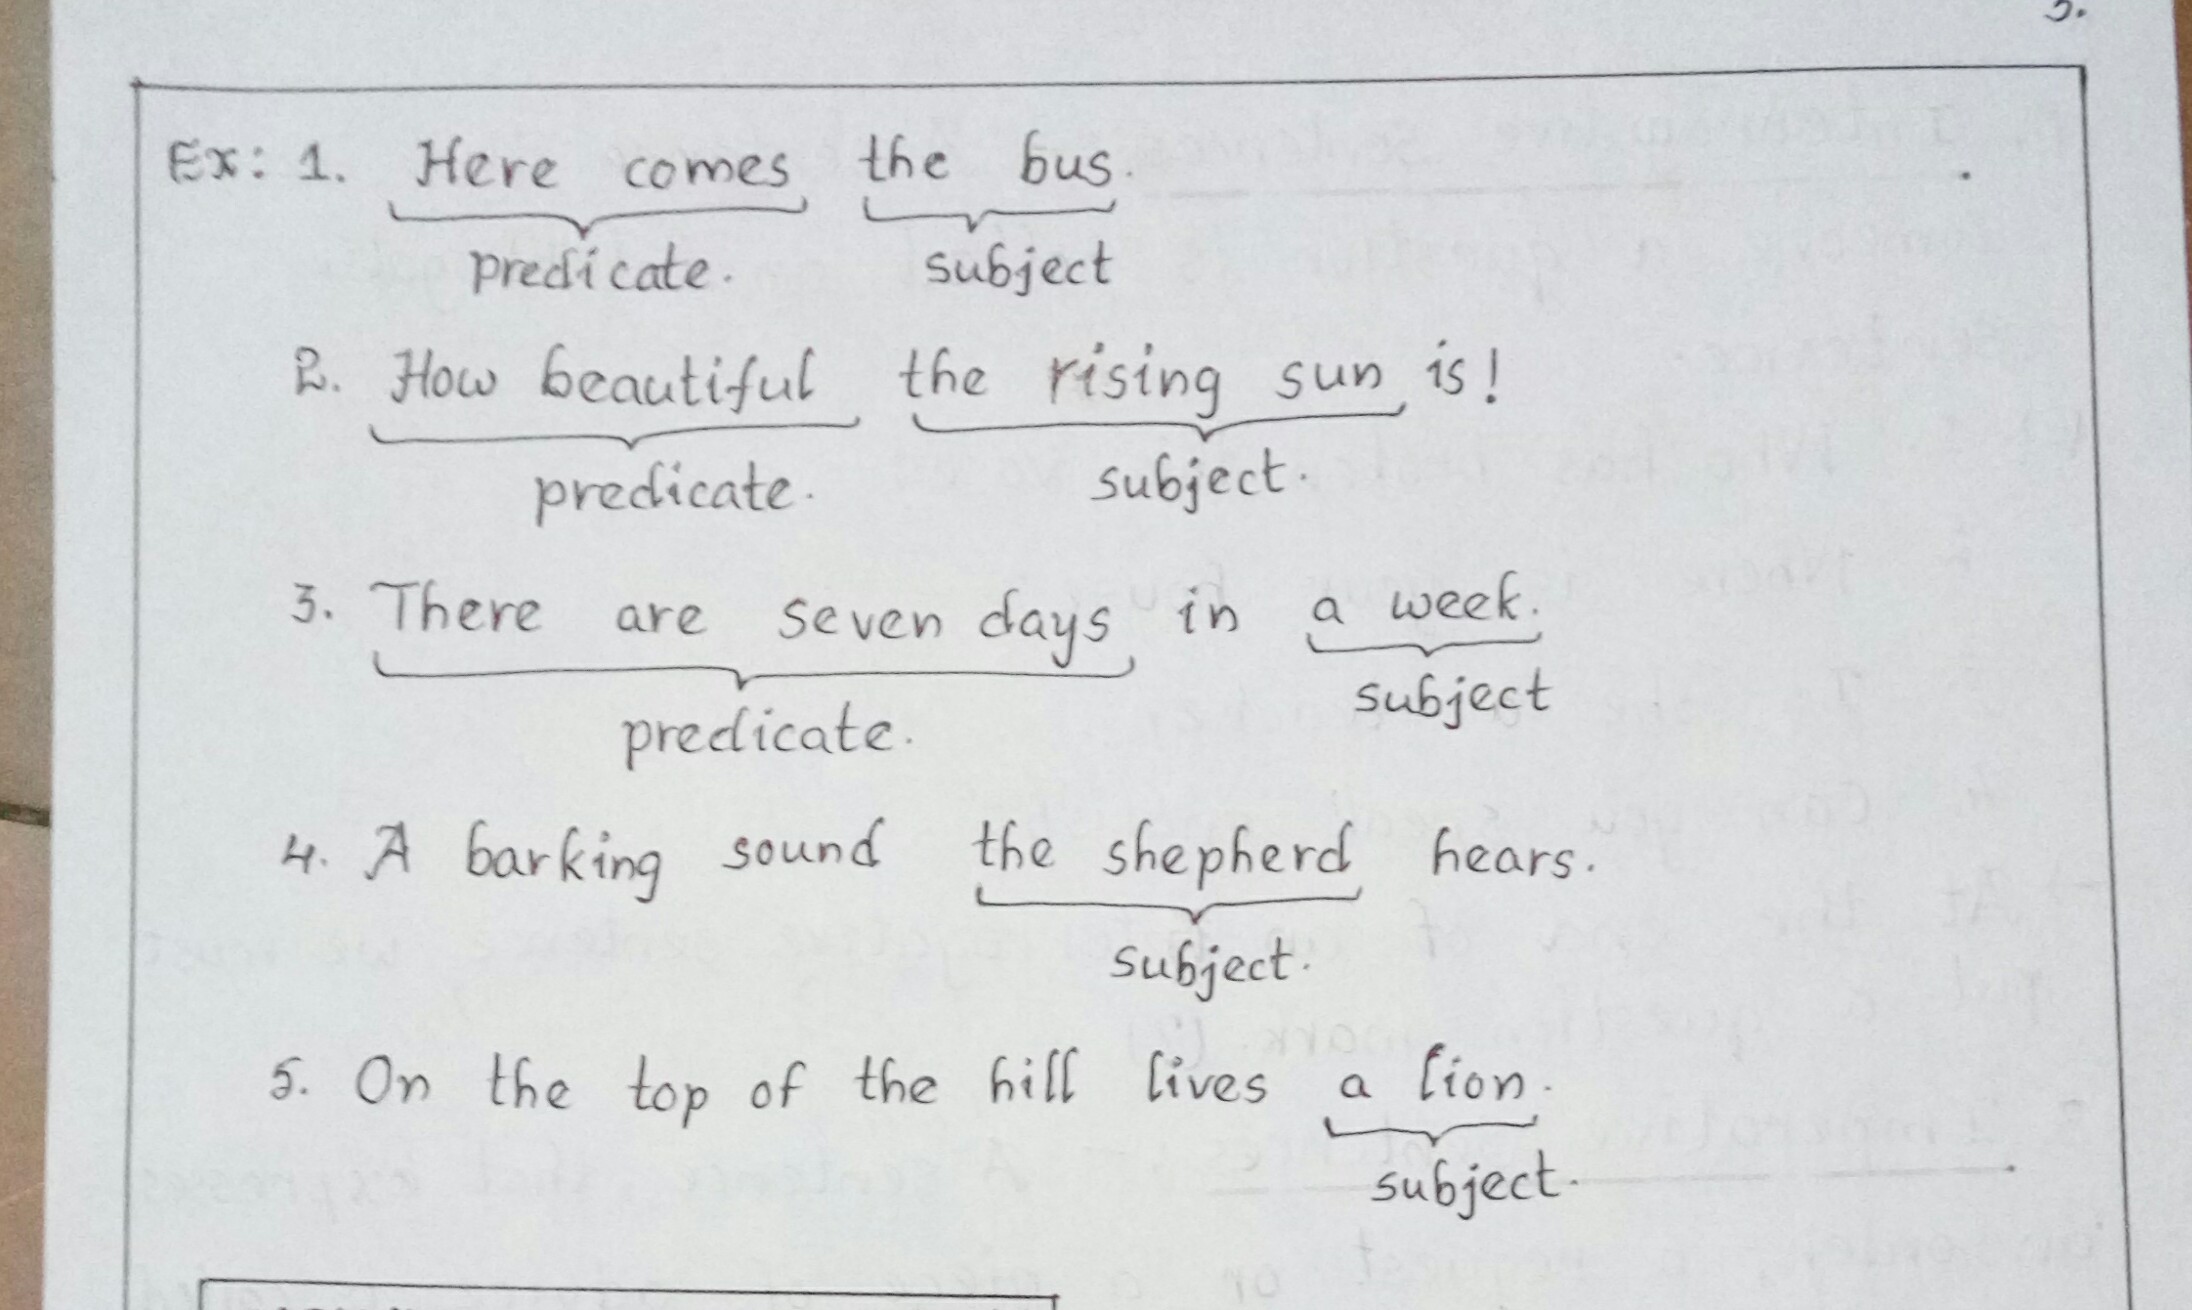 Ex: 1. Here comes the bus.
predicate. subject
2. How beautiful the rising sun is!
predicate. subject.
3. There are seven days in a week.
predicate. subject
4. A barking sound the shepherd hears.
subject.
5. On the top of the hill lives a lion.
subject.